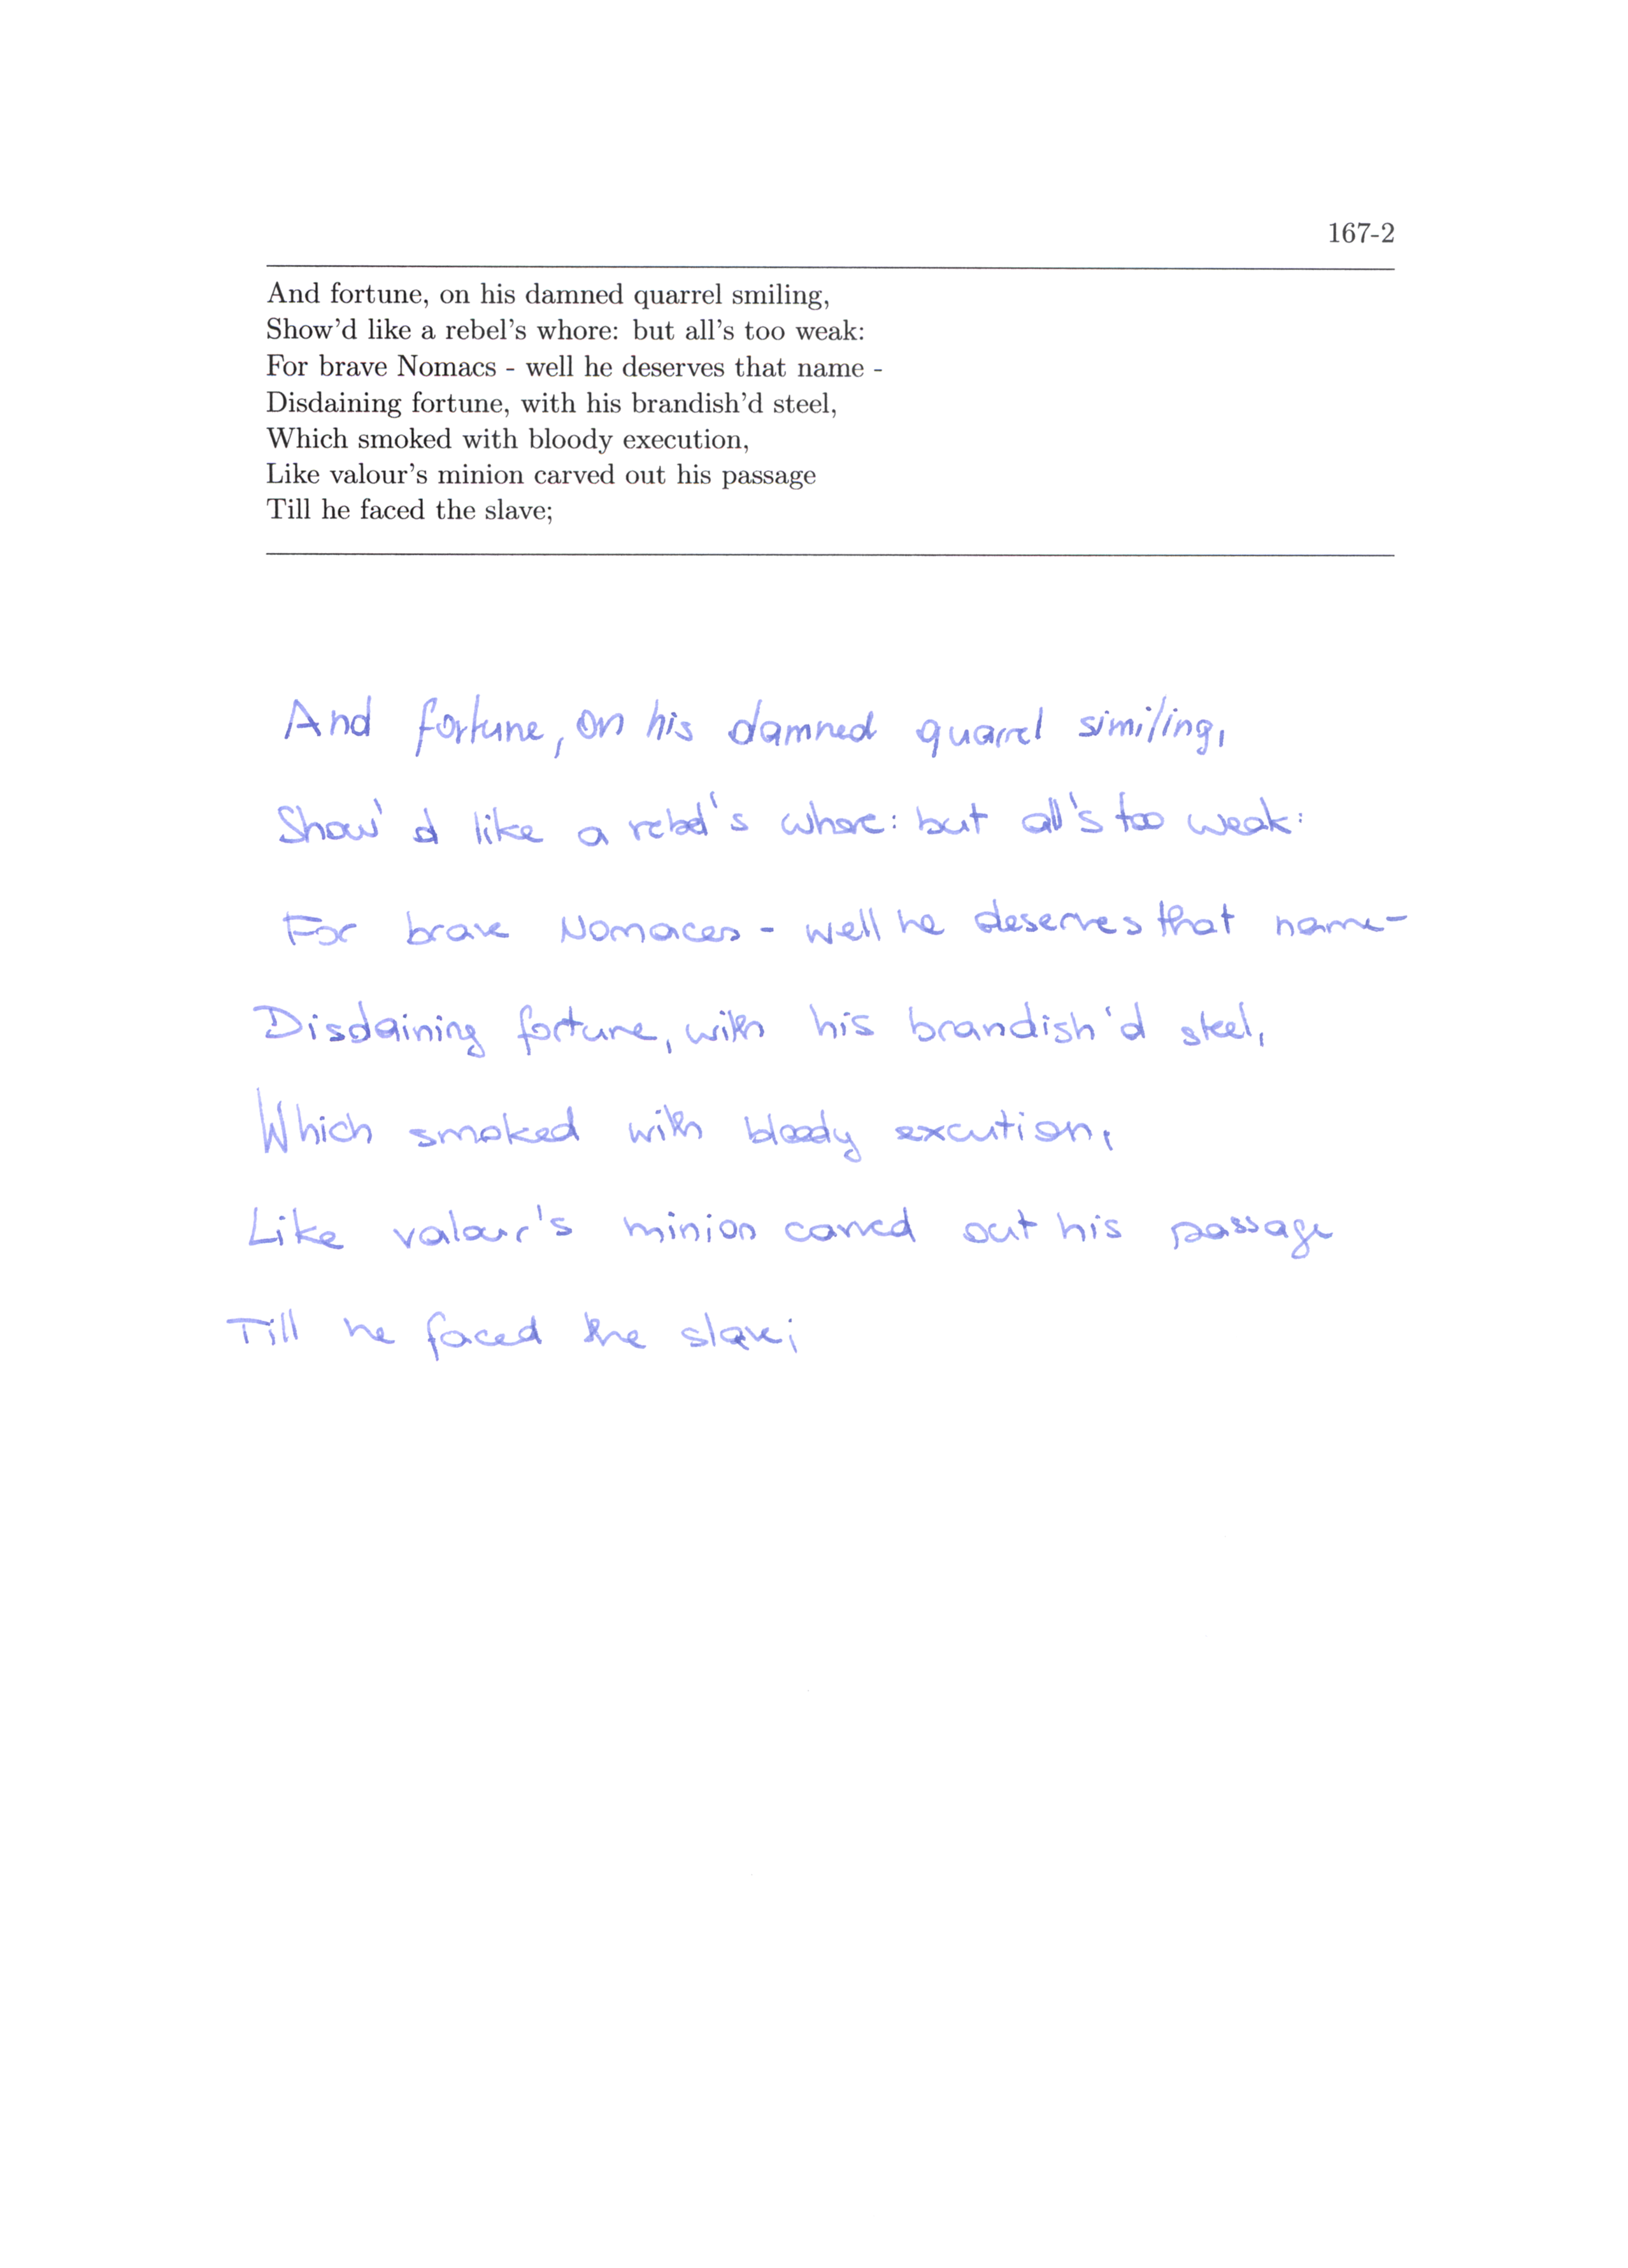 167-2
And fortune, on his damned quarrel smiling,
Show'd like a rebel's whore: but all's too weak:
For brave Nomacs - well he deserves that name -
Disdaining fortune, with his brandish'd steel,
Which smoked with bloody execution,
Like valour's minion carved out his passage
Till he faced the slave;
And fortune, on his damned quarrel similing,
Show'd like a rebel's whore: but all's too weak:
For brave Nomaces - well he deserves that name -
Disdaining fortune, with his brandish'd steel,
Which smoked with bloody excution,
Like valour's minion carved out his passage
Till he faced the slave;